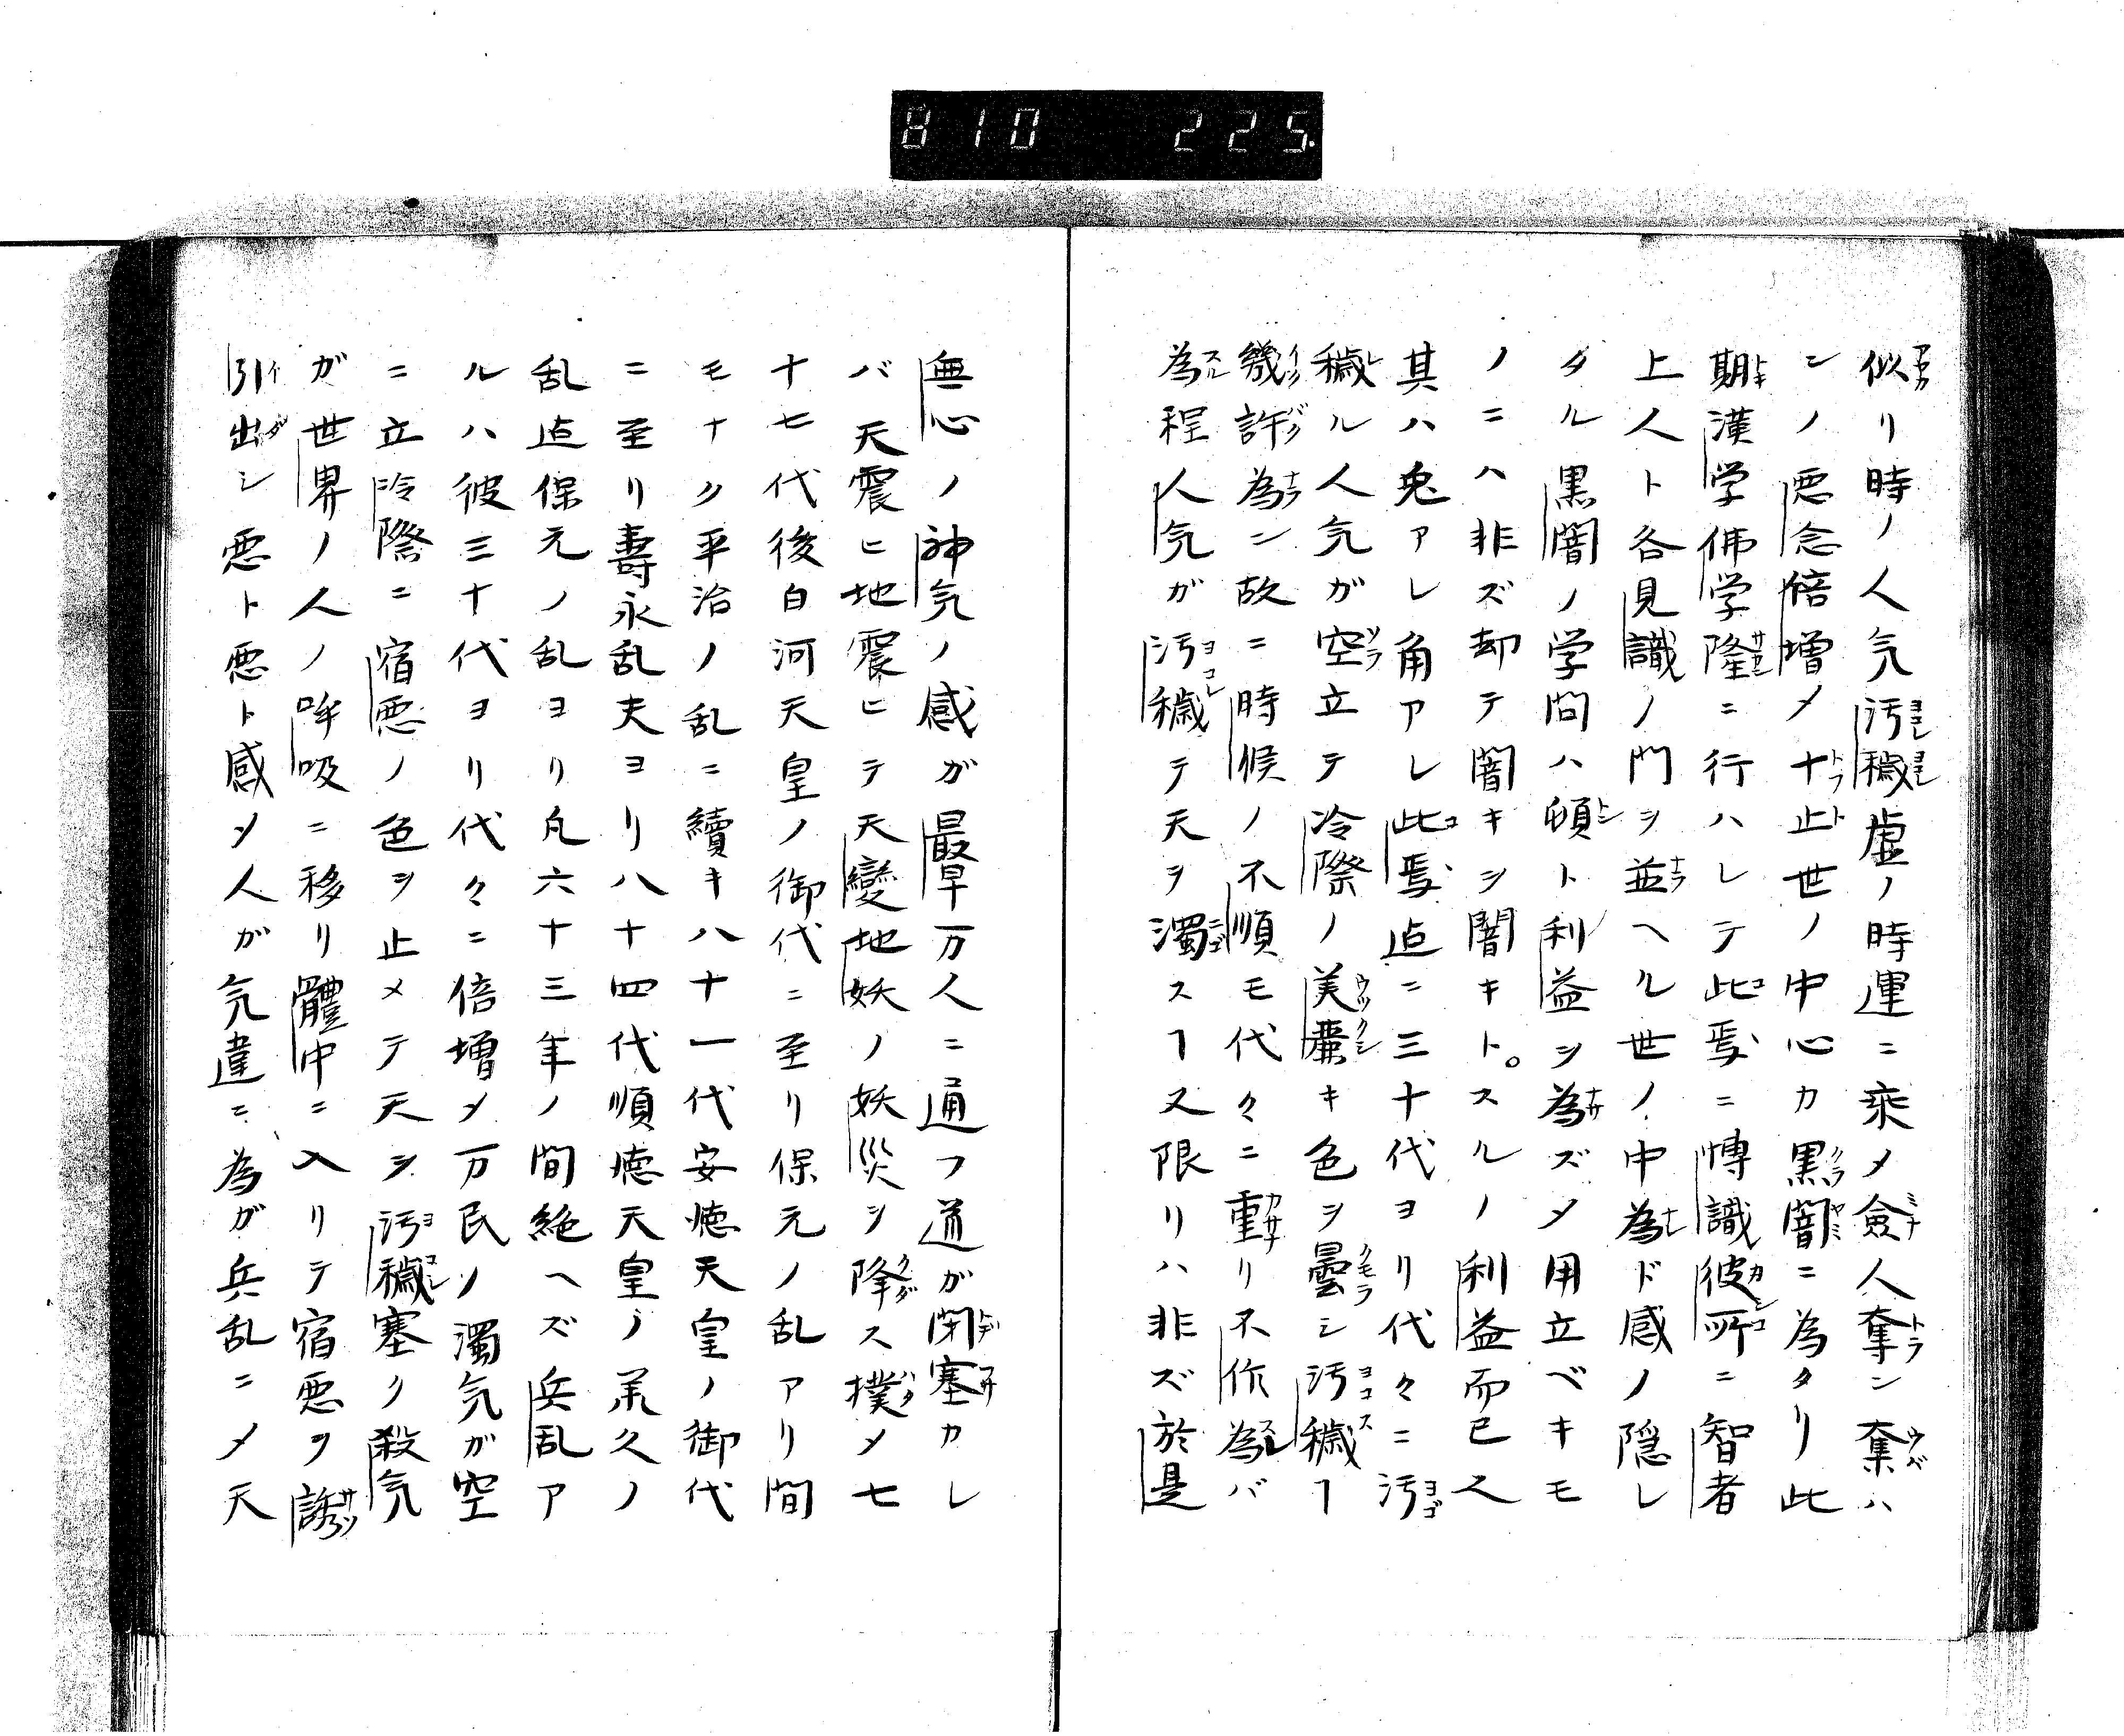 810 225
似リ時ノ人気汚穢虚ノ時運ニ乘〆僉人奪ン奪ハ
ンノ悪念倍増〆十止世ノ中心カ黒闇ニ為タリ此
期漢学佛学隆ニ行ハレテ此焉ニ博識彼所ニ智者
上人ト各見識ノ門ヲ並ヘル世ノ中為ド感ノ隠レ
タル黒闇ノ学問ハ頓ト利益ヲ為ズ〆用立ベキモ
ノニハ非ズ却テ闇キヲ闇キト。スルノ利益而已人
其ハ兎アレ角アレ此焉迠ニ三十代ヨリ代々ニ汚
穢ル人気ガ空立テ冷際ノ美麗キ色ヲ曇シ汚穢ヿ
幾許為ン故ニ時候ノ不順モ代々ニ重リ不作為バ
為程人気ガ汚穢テ天ヲ濁スヿ又限リハ非ズ於是
無心ノ神気ノ感ガ最早万人ニ通フ道ガ閉塞カレ
バ天震ヒ地震ヒテ天變地妖ノ妖災ヲ降ス撲〆七
十七代後白河天皇ノ御代ニ至リ保元ノ乱アリ間
モナク平治ノ乱ニ續キ八十一代安徳天皇ノ御代
ニ至リ壽永乱夫ヨリ八十四代順徳天皇ノ承久ノ
乱迠保元ノ乱ヨリ凡六十三年ノ間絶ヘズ兵乱ア
ルハ彼三十代ヨリ代々ニ倍増〆万民ノ濁気ガ空
ニ立冷際ニ宿悪ノ色ヲ止メテ天ヲ汚穢塞ク殺気
ガ世界ノ人ノ呼吸ニ移リ體中ニ入リテ宿悪ヲ誘
引出シ悪ト悪ト感〆人ガ気違ニ為ガ兵乱ニ〆天